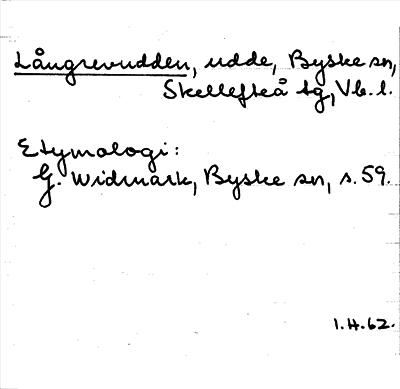 Långrevudden, udde, Byske sn,
Skellefteå tg, Vb. l.
Etymologi:
G. Widmark, Byske sn, s. 59.
I.H.62.